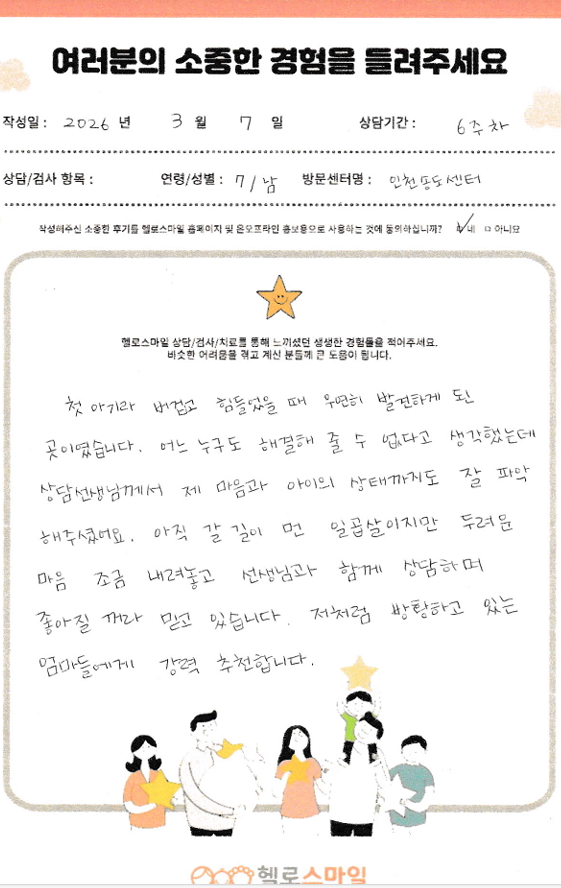 여러분의 소중한 경험을 들려주세요
작성일 : 2026 년 3 월 7 일 상담기간 : 6주차
상담/검사 항목 : 연령/성별 : 7/남 방문센터명 : 인천송도센터
작성해주신 소중한 후기를 헬로스마일 홈페이지 및 온오프라인 홍보용으로 사용하는 것에 동의하십니까? ☑ 네 □ 아니요
헬로스마일 상담/검사/치료를 통해 느끼셨던 생생한 경험들을 적어주세요.
비슷한 어려움을 겪고 계신 분들께 큰 도움이 됩니다.
첫 아기라 버겁고 힘들었을 때 우연히 발견하게 된
곳이였습니다. 어느 누구도 해결해 줄 수 없다고 생각했는데
상담선생님께서 제 마음과 아이의 상태까지도 잘 파악
해주셨어요. 아직 갈 길이 먼 일곱살이지만 두려운
마음 조금 내려놓고 선생님과 함께 상담하며
좋아질 꺼라 믿고 있습니다. 저처럼 방황하고 있는
엄마들에게 강력 추천합니다.
헬로스마일